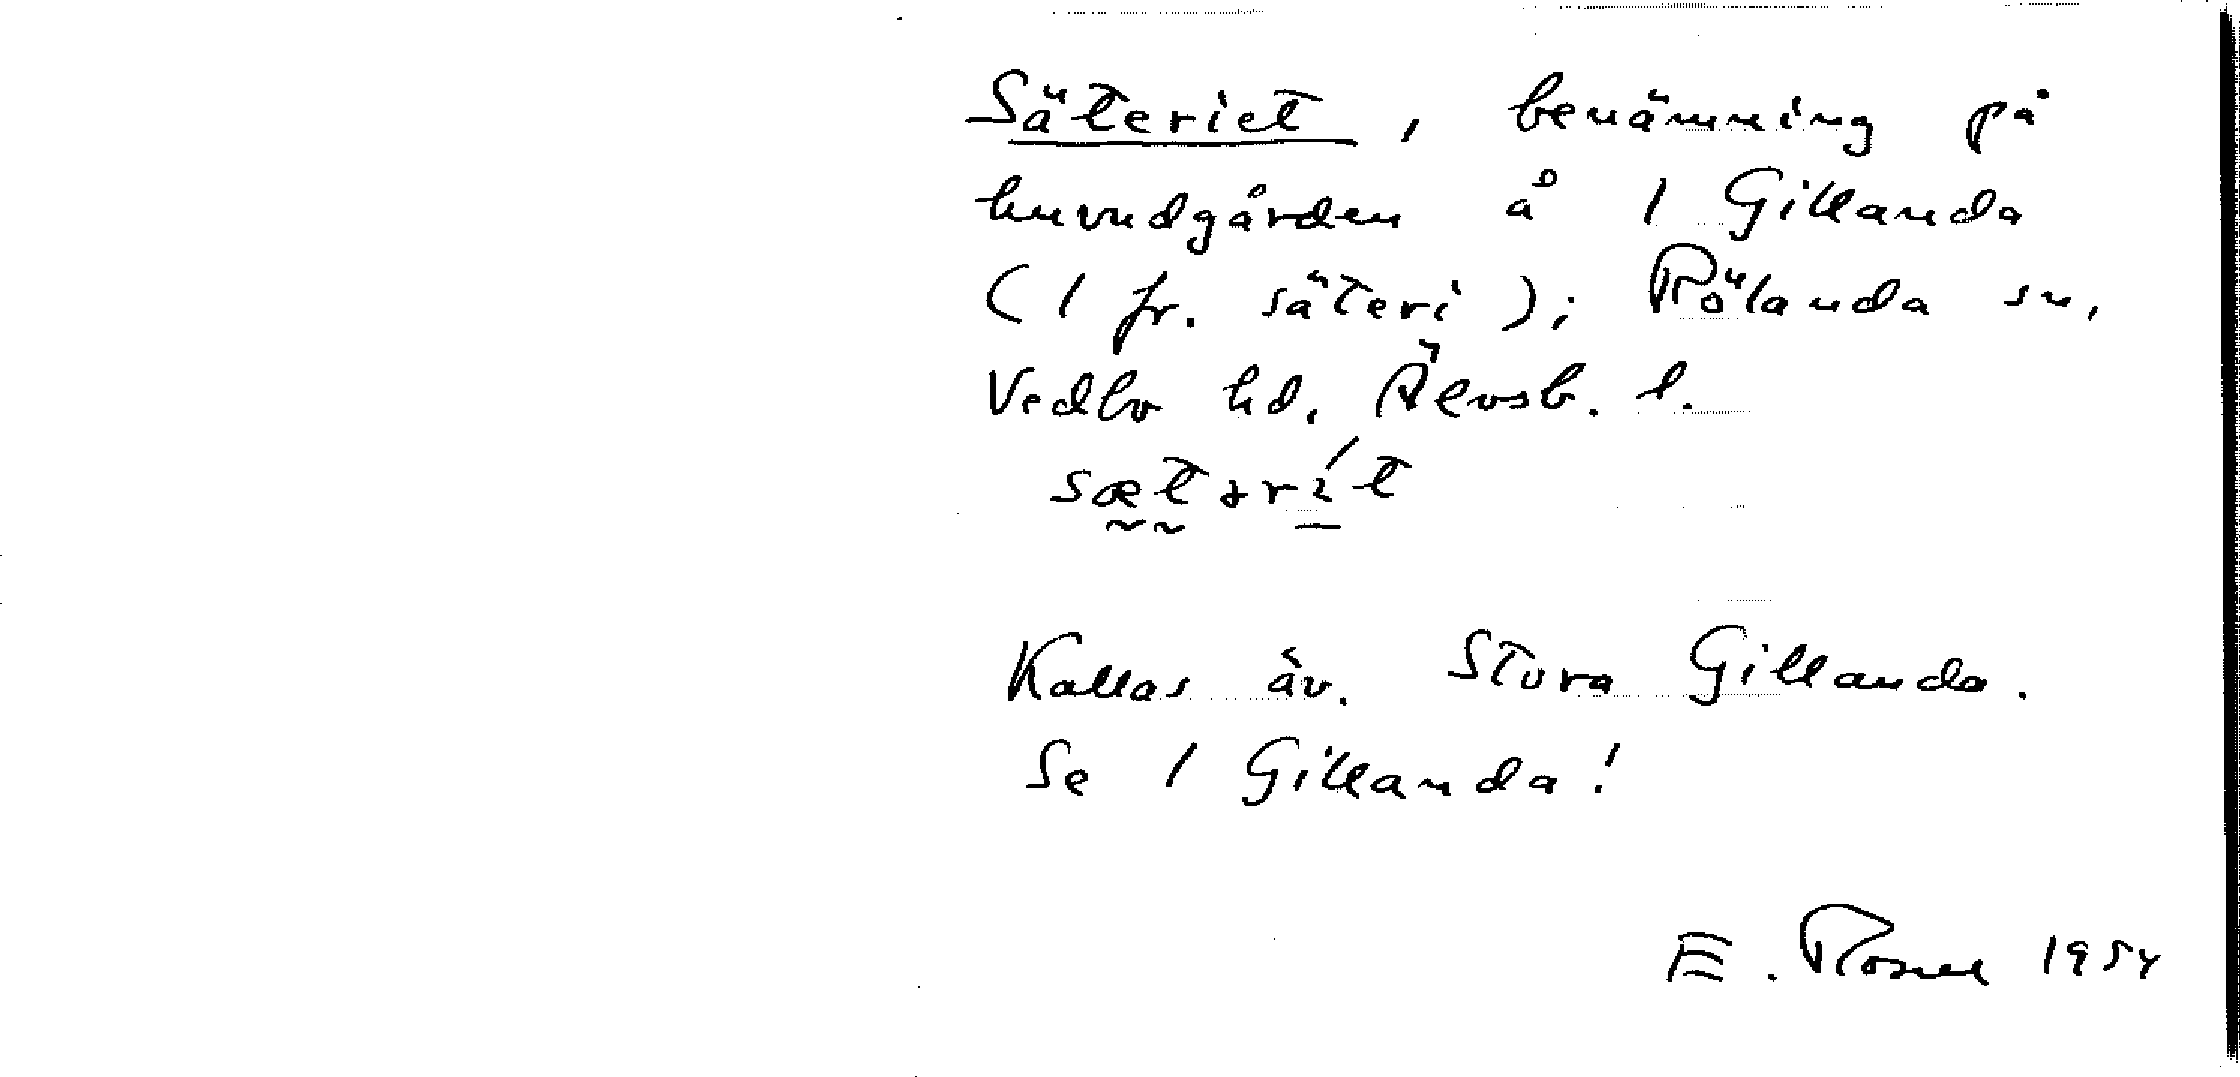 Säteriet, benämning på
huvudgården å 1 Gillanda
(1 fr. säteri); Rölanda sn,
Vedbo hd. Älvsb. l.
sætərít
Kallas äv. Stora Gillanda.
Se 1 Gillanda!
E. Rosell 1954